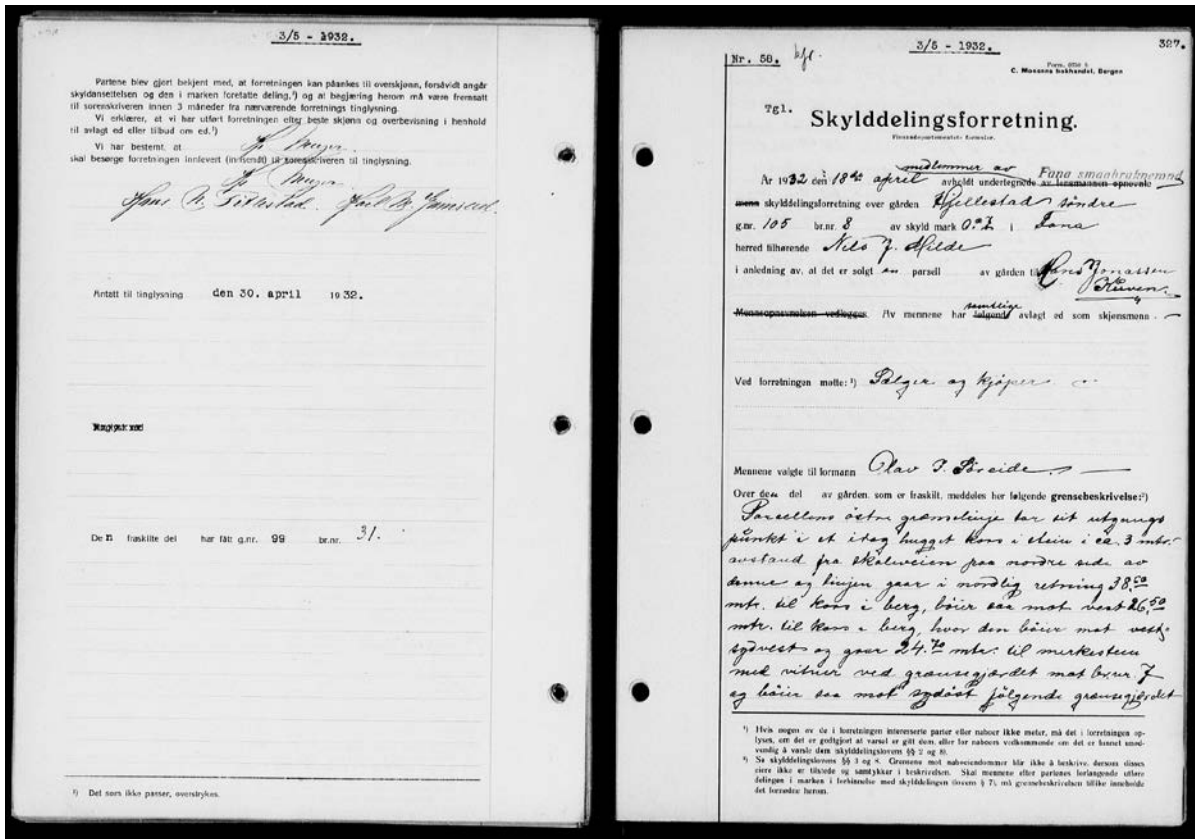 3/5 - 1932.
Partene blev gjort bekjent med, at forretningen kan påankes til overskjønn, forsåvidt angår
skyldansettelsen og den i marken foretatte deling,¹) og at begjæring herom må være fremsatt
til sorenskriveren innen 3 måneder fra nærværende forretnings tinglysning.
Vi erklærer, at vi har utført forretningen efter beste skjønn og overbevisning i henhold
til avlagt ed eller tilbud om ed.¹)
Vi har bestemt, at
skal besørge forretningen innlevert (innsendt) til sorenskriveren til tinglysning.
Hans
Antatt til tinglysning den 30. april 1932.
Den fraskilte del har fått g.nr. 99 br.nr. 31.
¹) Det som ikke passer, overstrykes.
3/5 - 1932.
327.
Nr. 58.
C. Monsens bokhandel, Bergen
Tgl.
Skylddelingsforretning.
medlemmer av Fana smaabruknemnd
År 1932 den 18de april avholdt undertegnede av lensmannen opnevnte
menn skylddelingsforretning over gården Hjellestad söndre
g.nr. 105 br.nr. 8 av skyld mark i Fana
herred tilhørende Nils J. Milde
i anledning av, at det er solgt en parsell av gården til Hans Jonassen
samtlige
Mennsopnevnelsen vedlegges. Av mennene har følgende avlagt ed som skjønsmenn.
Ved forretningen møtte: ¹) Sælger og kjøper
Mennene valgte til formann Olav I. Søreide.
Over den del av gården, som er fraskilt, meddeles her følgende grensebeskrivelse:²)
Parsellens östre grænselinje tar sit utgangs
punkt i et idag hugget kors i stein i ca. 3 mtr.
avstand fra skoleveien paa nordre side av
denne og linjen gaar i nordlig retning 38.50
mtr. til kors i berg, böier saa mot vest 26.50
mtr. til kors i berg, hvor den böier mot vest
sydvest og gaar 24.70 mtr. til merkestein
med vitner ved grænsegjærdet mot br.nr. 7
og böier saa mot sydöst följende grænsegjærdet
¹) Hvis nogen av de i forretningen interesserte parter eller naboer ikke møter, må det i forretningen op-
lyses, om det er godtgjort at varsel er gitt dem, eller for naboers vedkommende om det er funnet unød-
vendig å varsle dem (skylddelingslovens §§ 2 og 8).
²) Se skylddelingslovens §§ 3 og 8. Grensene mot naboeiendommer blir ikke å beskrive, dersom disses
eiere ikke er tilstede og samtykker i beskrivelsen. Skal mennene efter partenes forlangende utføre
delingen i marken i forbindelse med skylddelingen (lovens § 7), må grensebeskrivelsen tillike inneholde
det fornødne herom.